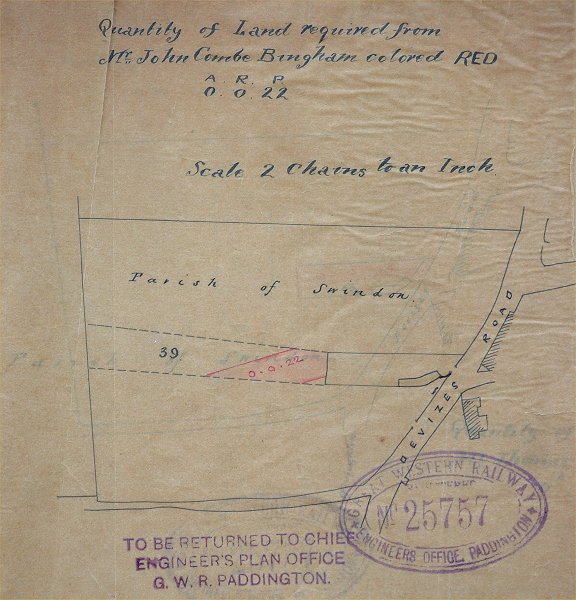 Quantity of Land required from
Mr. John Combe Bingham colored RED
A. R. P.
0. 0. 22
Scale 2 Chains to an Inch.
Parish of Swindon.
39
0. 0. 22
DEVIZES ROAD
GREAT WESTERN RAILWAY
No 25757
ENGINEERS OFFICE, PADDINGTON
TO BE RETURNED TO CHIEF
ENGINEER'S PLAN OFFICE
G. W. R. PADDINGTON.